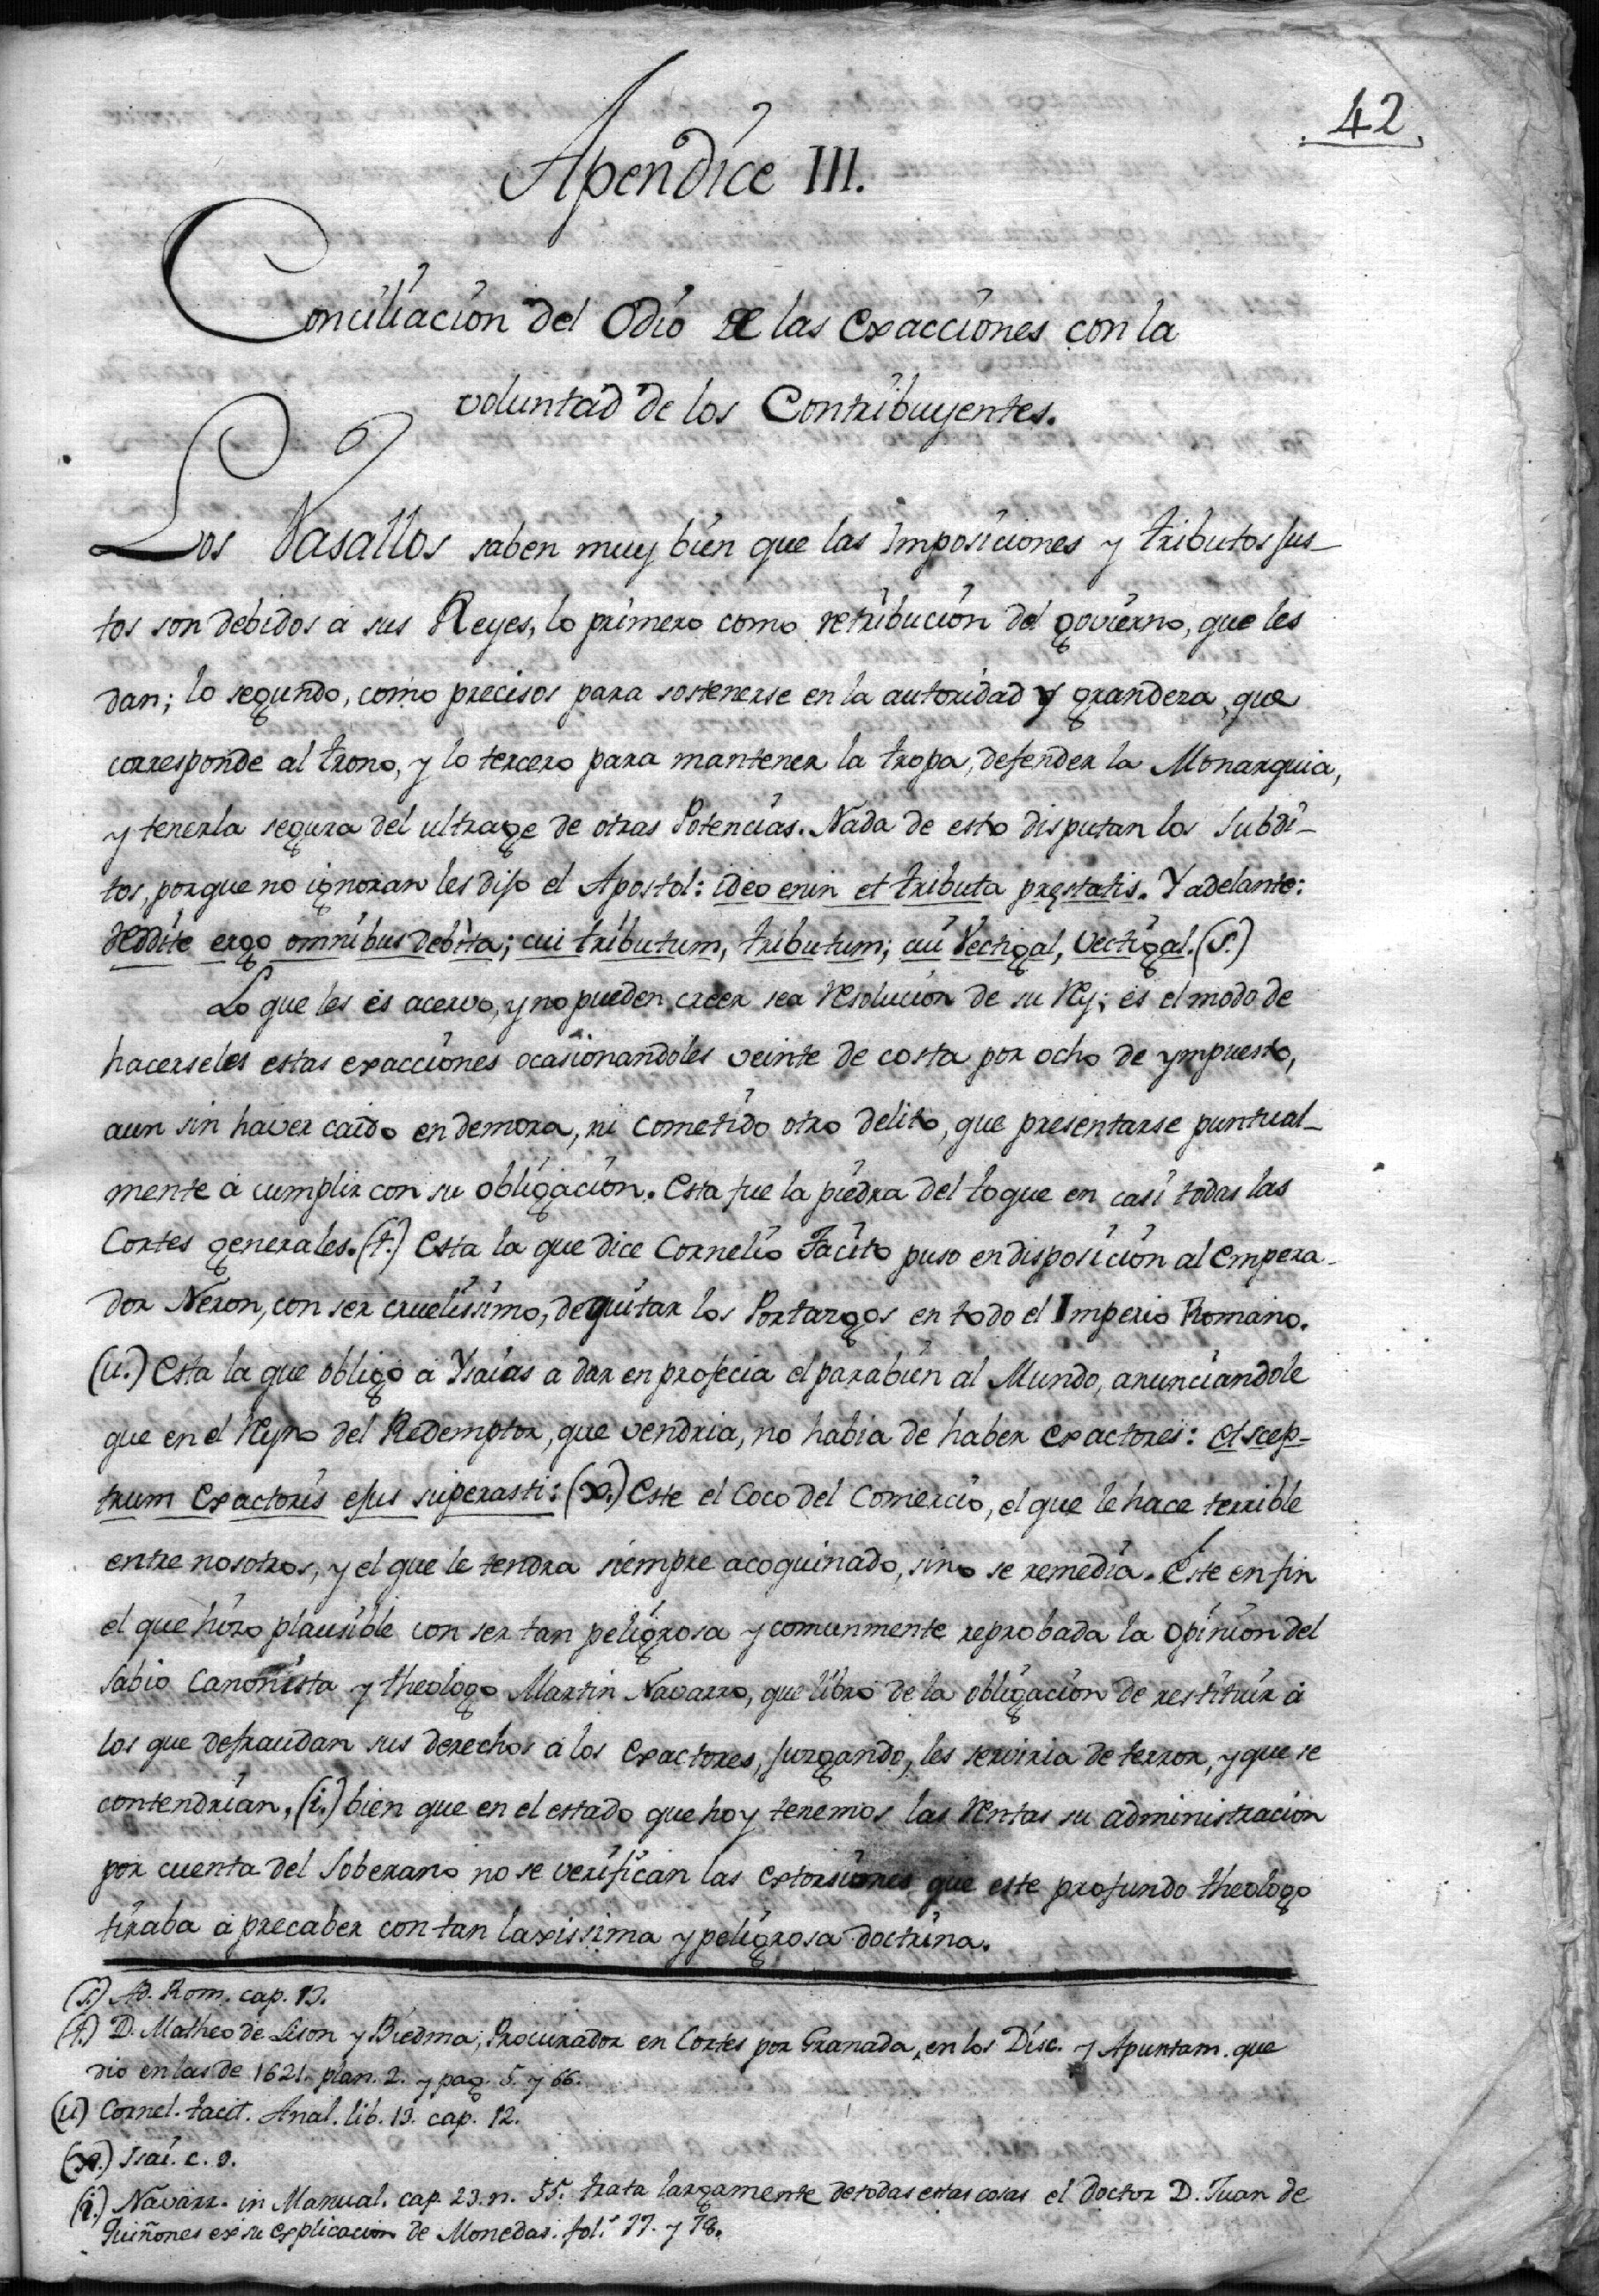 42
Apendíce III.
Concíliacíon del Odío de las Exaccíones con la
voluntad de los Contríbuyentes.
Los Vasallos saben muy bíen que las Imposíciones y tríbutos jus-
tos son debídos á sus Reyes, lo prímero como retríbucíon del govíerno, que les
dan; lo segundo, como precisos para sostenerse en la autoridad y grandeza, que
corresponde al trono, y lo tercero para mantener la tropa, defender la Monarquia,
y tenerla segura del ultrage de otras Potencías. Nada de esto disputan los Subdí-
tos, porque no ignoran les dijo el Apostol: ideo enin et tríbuta pręstatis. Y adelante:
reddíte ergo omníbus debíta; cui tríbutum, tributum; cuí Vectígal, vectígal. (s.)
Lo que les és acervo, y no pueden creer sea resolucíon de su Rey; és el modo de
hacerseles estas exaccíones ocasíonandoles veinte de costa por ocho de ympuesto,
aun sin haver caído en demora, ni cometído otro delito, que presentarse puntual-
mente á cumplir con su oblígacíon. Esta fue la píedra del toque en casí todas las
Cortes generales. (t.) Esta la que dice Cornelío Tacíto puso en disposícíon al Empera-
dor Neron, con ser cruelíssímo, de quítar los Portazgos en todo el Imperio Romano.
(u.) Esta la que oblígó á Ysaías a dar en profecia el parabíen al Mundo, anuncíandole
que en el Reyno del Redemptor, que vendria, no habia de haber exactores: et scep-
trum exactorís ejus superasti: (x.) Este el Coco del Comercío, el que le hace terríble
entre nosotros, y el que le tendra síempre acoquinado, sino se remedía. Este en fin
el que hízo plausíble con ser tan pelígrosa y comunmente reprobada la opíníon del
sabio Canonísta y theologo Martin Navarro, que líbró de la oblígacíon de restítuír á
los que defraudan sus derechos á los exactores, juzgando, les serviria de terror, y que se
contendrían, (i.) bien que en el estado que hoy tenemos las Rentas su administracion
por cuenta del Soberano no se verífícan las extorsíones que este profundo theologo
tíraba á precaber con tan laxissima y pelígrosa doctrína.
(s.) Ad. Rom. cap. 13.
(t.) D. Matheo de Lison y Bíedma, Procurador en Cortes por Granada, en los Dísc. y Apuntam. que
dio en las de 1621. plan. 2. y pag. 5. y 66.
(u) Cornel. tacit. Anal. lib. 13. cap. 12.
(x.) Isaí. c. 9.
(i.) Navarr. in Manual. cap. 23. n. 55. trata largamente de todas estas cosas el doctor D. Juan de
Quiñones en su explicacion de Monedas. fol. 77. y 78.